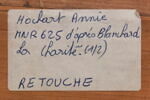 Hochart Annie
MNR 625 d'après Blanchard
La Charité (1/2)
RETOUCHE